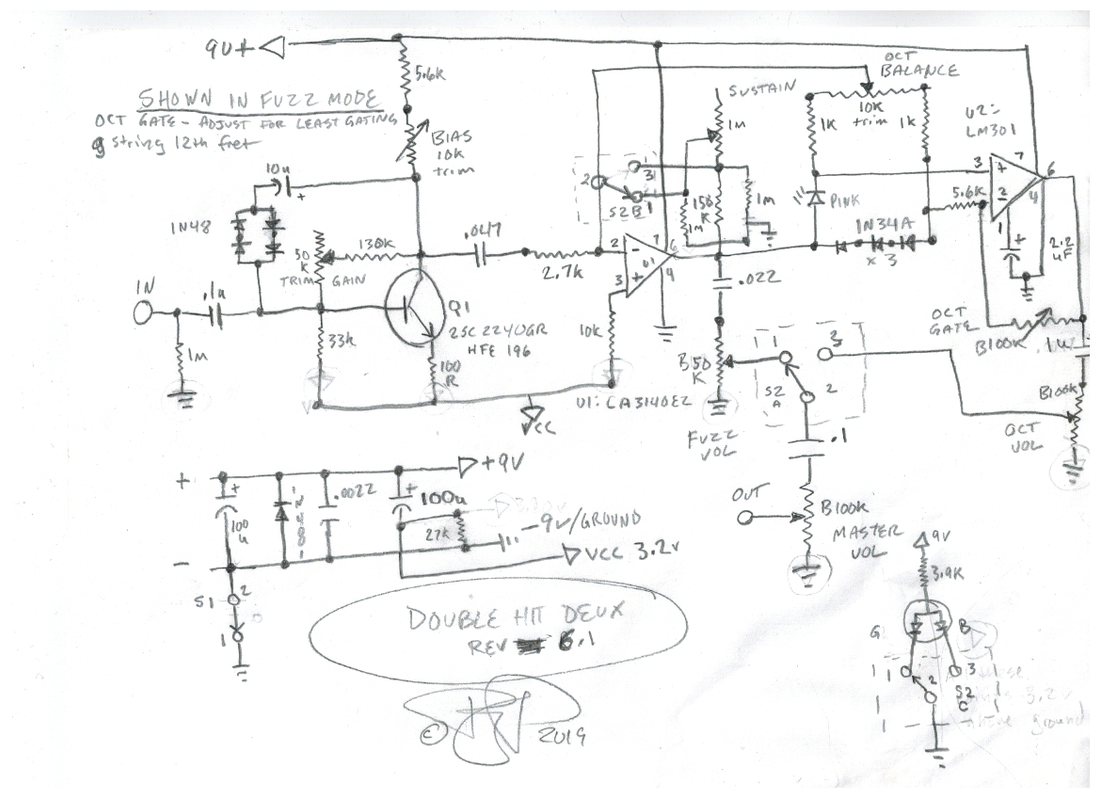 9V+
5.6K
SHOWN IN FUZZ MODE
OCT GATE - ADJUST FOR LEAST GATING
g string 12th fret
BIAS
10K
trim
10u
+
1N48
50
K
TRIM
GAIN
130K
.047
2.7K
IN
.1u
1M
33K
Q1
2SC2240GR
HFE 196
100
R
10K
U1: CA3140EZ
VCC
SUSTAIN
1M
2
3
1
S2B
150
K
1M
1M
2
3
7
6
4
U1
.022
OCT
BALANCE
10K
trim
1K
1K
PINK
1N34A
x 3
U2=
LM301
3
2
7
6
4
1
5.6K
+
2.2
uF
OCT
GATE
B100K
.1u
B100K
OCT
VOL
B50
K
FUZZ
VOL
1
3
S2
A
2
.1
OUT
B100K
MASTER
VOL
+
+9V
+
100
u
.0022
+
100u
27K
-9V/GROUND
VCC 3.2V
-
S1
2
1
DOUBLE HIT DEUX
REV 6.1
© 2019
9V
3.9K
G
B
1
2
3
S2
C